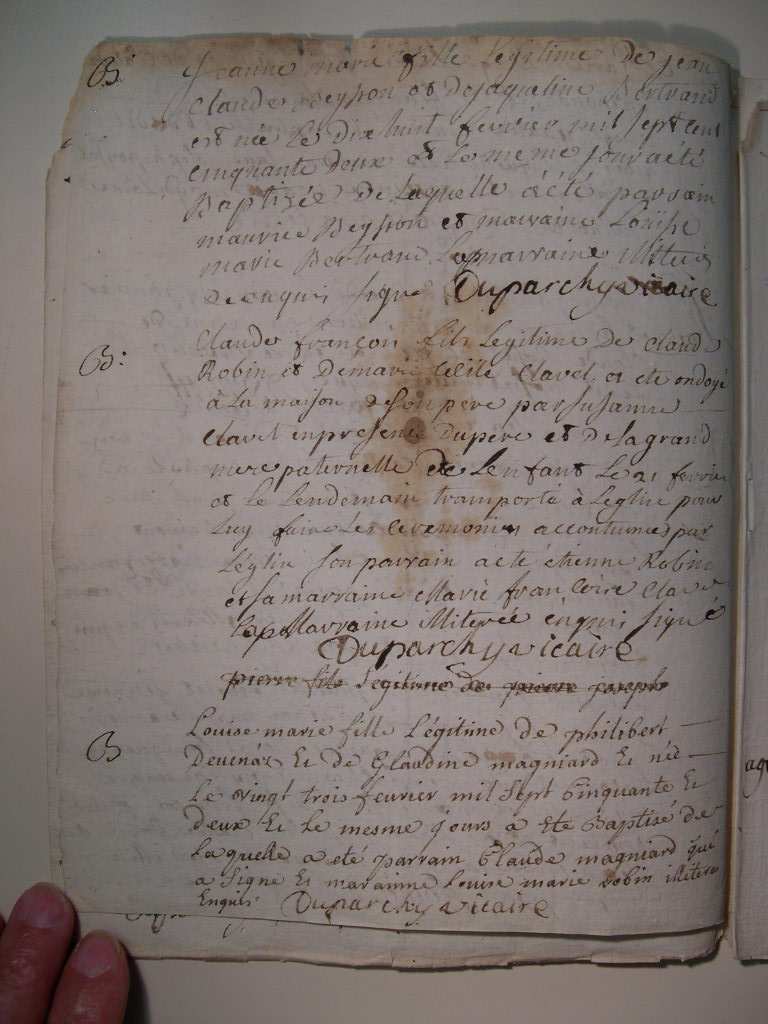 B
Jeanne marie fille Legitime de jean
Claude Beysson et de jaqueline Bertrand
est née le Dixhuit fevrier mil sept cent
cinquante deux et le meme jour a été
Baptisée de laquelle a été parrain
maurice Beysson et marraine Louise
marie Bertrand La marraine illiteré
de enquis signe Duparchy vicaire
B:
Claude françois fils Legitime de Claude
Robin et de marie Cecile Clavel a ete ondoyé
à la maison de son pere par Susanne
Clavel en presence du pere et de la grand
mere paternelle de L'enfant le 21 fevrie
et le Lendemain transporté à L'eglise pour
luy faire les ceremonies accoutumées par
L'église son parrain a été étienne Robin
et sa marraine Marie françoise Clave
la Marraine Miterée enquis signé
Duparchy vicaire
pierre fils Legitime de pierre joseph
B
Louise marie fille Légitime de philibert
Devenaz Et de Glaudine magniard Et née
Le vingt trois fevrier mil sept Cinquante Et
deux Et le mesme jours a Ete Baptisé de
Laquelle a eté parrain Claude magniard qui
a signe Et marainne Louise marie Robin illitere
Enquis Duparchy vicaire